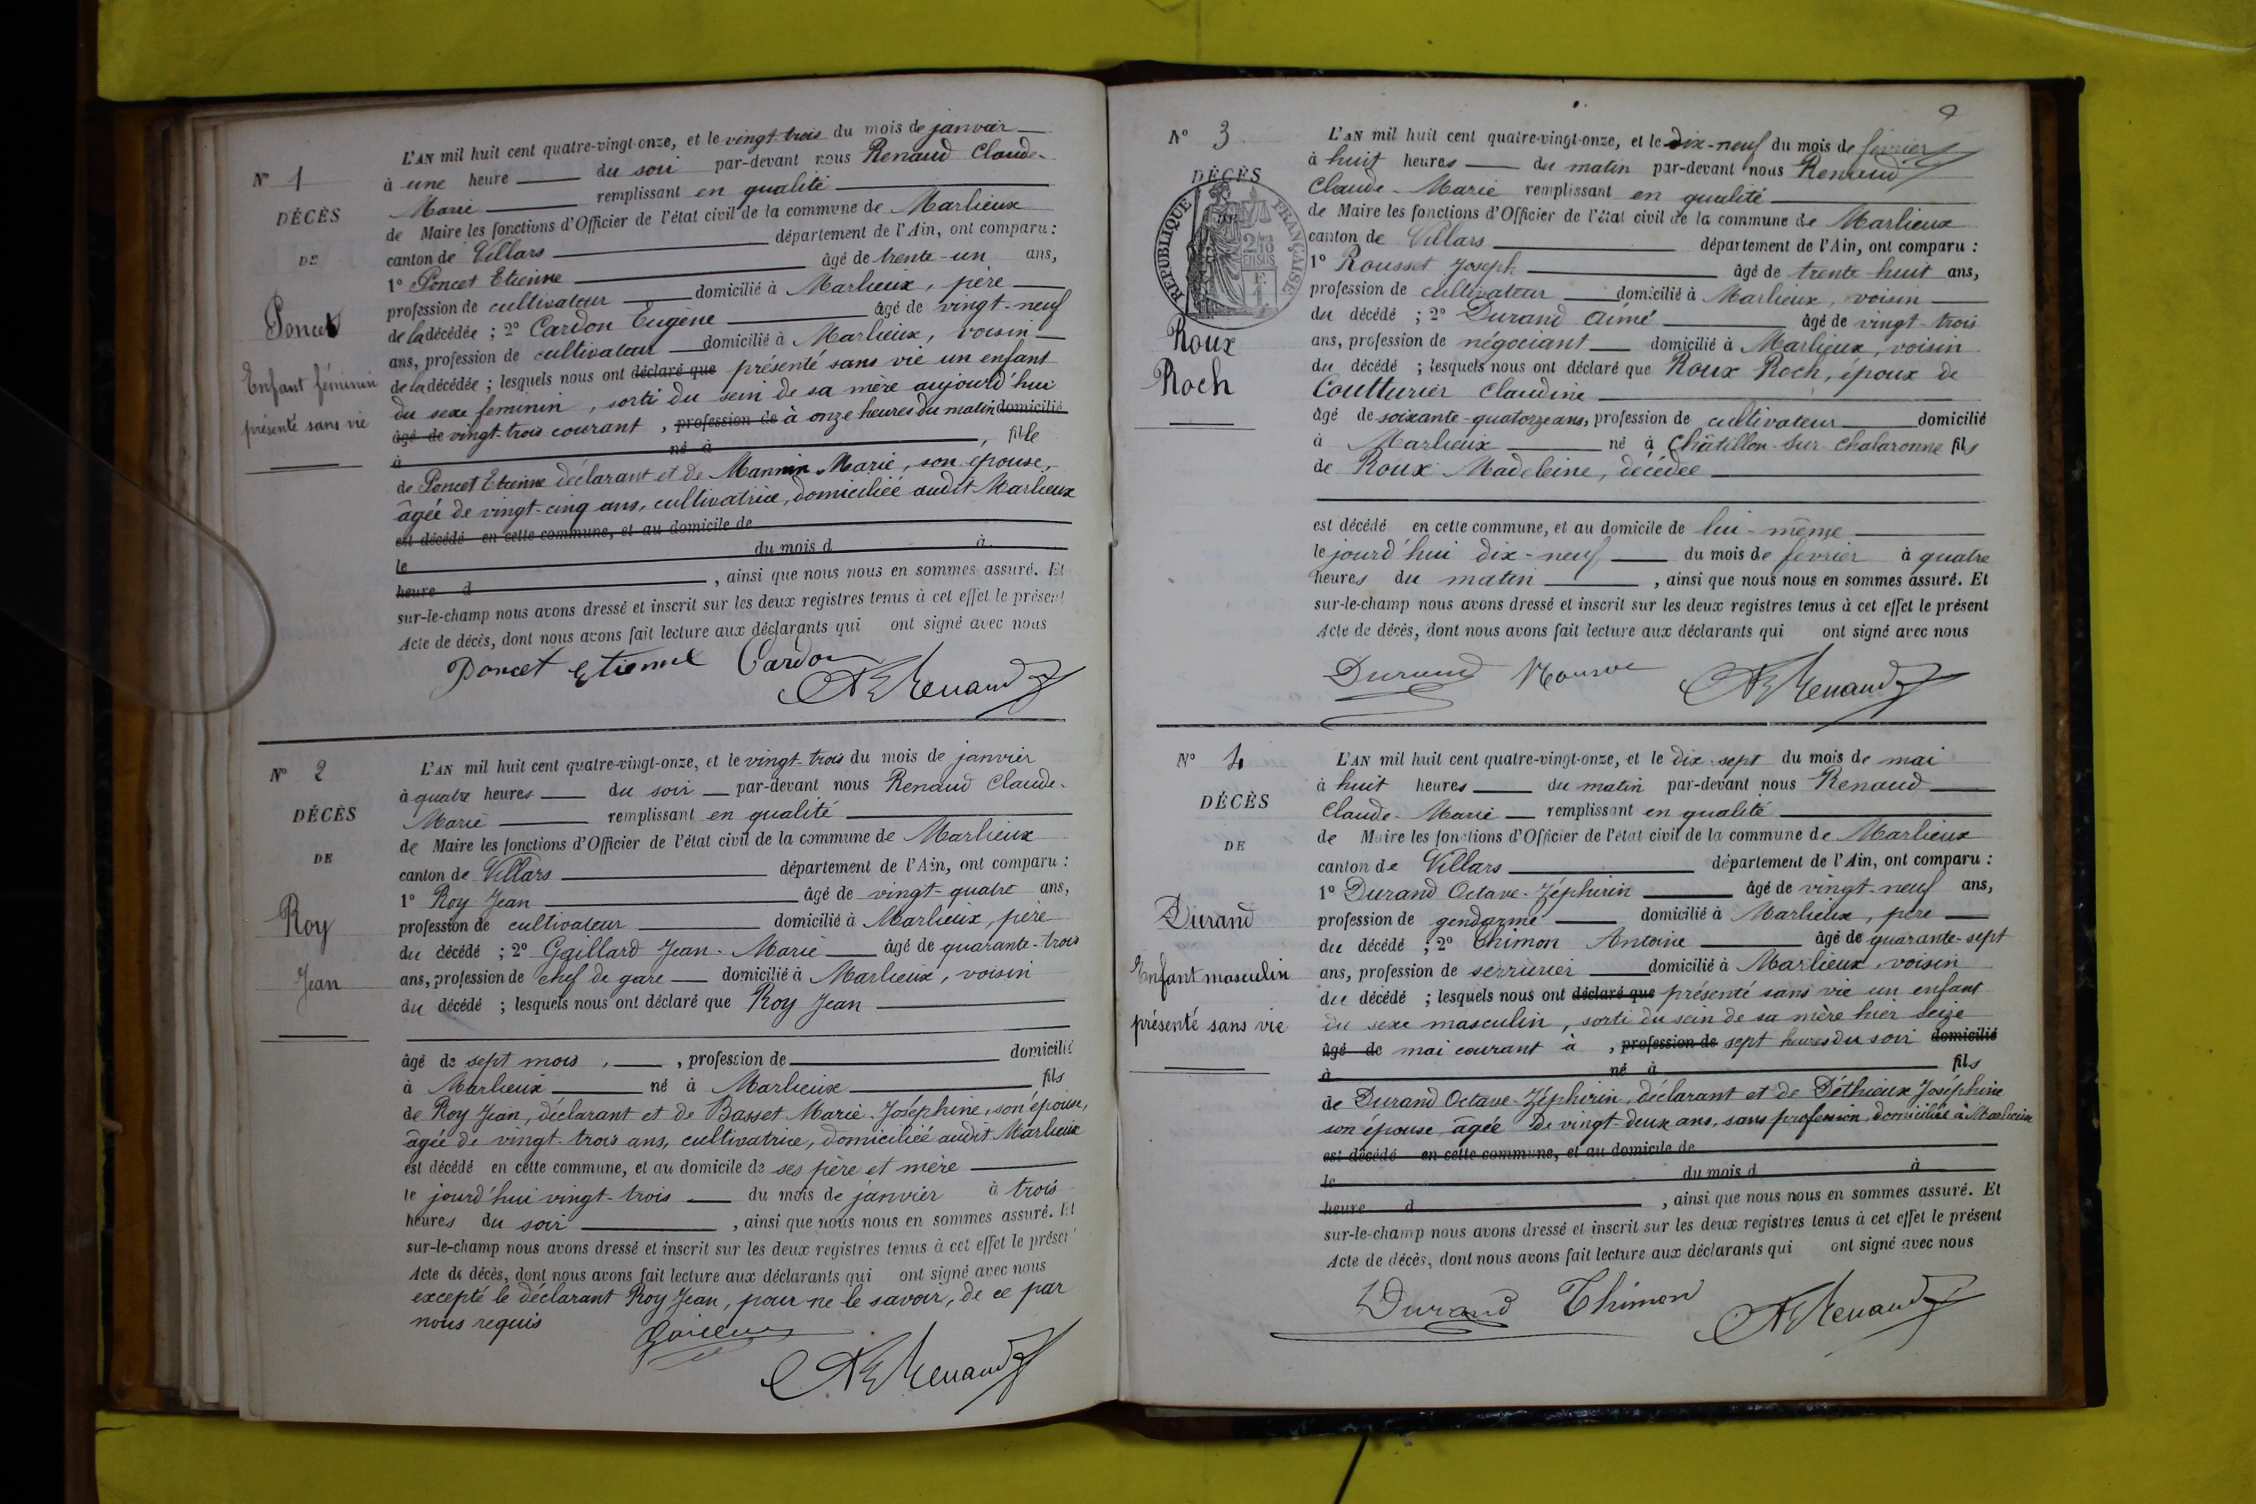 N° 1
DÉCÈS
DE
Poncet
Enfant féminin
présenté sans vie
L'AN mil huit cent quatre-vingt-onze, et le vingt-trois du mois de janvier
à une heure du soir par-devant nous Renaud Claude-
Marie remplissant en qualité
de Maire les fonctions d'Officier de l'état civil de la commune de Marlieux
canton de Villars département de l'Ain, ont comparu :
1° Poncet Etienne âgé de trente-un ans,
profession de cultivateur domicilié à Marlieux, père
de la décédée ; 2° Cardon Eugène âgé de vingt-neuf
ans, profession de cultivateur domicilié à Marlieux, voisin
de la décédée ; lesquels nous ont déclaré que présenté sans vie un enfant
du sexe feminin, sorti du sein de sa mère aujourd'hui
âgé de vingt-trois courant, profession de à onze heures du matin domicilié
à né à , fille
de Poncet Etienne déclarant et de Mannin Marie, son épouse,
âgée de vingt-cinq ans, cultivatrice, domiciliée audit Marlieux
est décédé en cette commune, et au domicile de
le du mois d à
heure d , ainsi que nous nous en sommes assuré. Et
sur-le-champ nous avons dressé et inscrit sur les deux registres tenus à cet effet le présent
Acte de décès, dont nous avons fait lecture aux déclarants qui ont signé avec nous
Poncet Etienne Cardon
Renaud
N° 2
DÉCÈS
DE
Roy
Jean
L'AN mil huit cent quatre-vingt-onze, et le vingt-trois du mois de janvier
à quatre heures du soir par-devant nous Renaud Claude-
Marie remplissant en qualité
de Maire les fonctions d'Officier de l'état civil de la commune de Marlieux
canton de Villars département de l'Ain, ont comparu :
1° Roy Jean âgé de vingt-quatre ans,
profession de cultivateur domicilié à Marlieux, père
du décédé ; 2° Gaillard Jean-Marie âgé de quarante-trois
ans, profession de chef de gare domicilié à Marlieux, voisin
du décédé ; lesquels nous ont déclaré que Roy Jean
âgé de sept mois, , profession de domicilié
à Marlieux né à Marlieux fils
de Roy Jean, déclarant et de Basset Marie-Joséphine, son épouse,
âgée de vingt-trois ans, cultivatrice, domiciliée audit Marlieux
est décédé en cette commune, et au domicile de ses père et mère
le jourd'hui vingt-trois du mois de janvier à trois
heures du soir , ainsi que nous nous en sommes assuré. Et
sur-le-champ nous avons dressé et inscrit sur les deux registres tenus à cet effet le présent
Acte de décès, dont nous avons fait lecture aux déclarants qui ont signé avec nous
excepté le déclarant Roy Jean, pour ne le savoir, de ce par
nous requis
Renaud
N° 3
DÉCÈS
RÉPUBLIQUE FRANÇAISE
Roux
Roch
L'AN mil huit cent quatre-vingt-onze, et le dix-neuf du mois de février
à huit heures du matin par-devant nous Renaud
Claude-Marie remplissant en qualité
de Maire les fonctions d'Officier de l'état civil de la commune de Marlieux
canton de Villars département de l'Ain, ont comparu :
1° Rousset Joseph âgé de trente-huit ans,
profession de cultivateur domicilié à Marlieux, voisin
du décédé ; 2° Durand Aimé âgé de vingt-trois
ans, profession de négociant domicilié à Marlieux, voisin
du décédé ; lesquels nous ont déclaré que Roux Roch, époux de
Coutturier Claudine
âgé de soixante-quatorze ans, profession de cultivateur domicilié
à Marlieux né à Châtillon-sur-Chalaronne fils
de Roux Madeleine, décédée
est décédé en cette commune, et au domicile de lui-même
le jourd'hui dix-neuf du mois de février à quatre
heures du matin , ainsi que nous nous en sommes assuré. Et
sur-le-champ nous avons dressé et inscrit sur les deux registres tenus à cet effet le présent
Acte de décès, dont nous avons fait lecture aux déclarants qui ont signé avec nous
Durand Renaud
N° 4
DÉCÈS
DE
Durand
Enfant masculin
présenté sans vie
L'AN mil huit cent quatre-vingt-onze, et le dix-sept du mois de mai
à huit heures du matin par-devant nous Renaud
Claude-Marie remplissant en qualité
de Maire les fonctions d'Officier de l'état civil de la commune de Marlieux
canton de Villars département de l'Ain, ont comparu :
1° Durand Octave-Zéphirin âgé de vingt-neuf ans,
profession de gendarme domicilié à Marlieux, père
du décédé ; 2° Thimon Antoine âgé de quarante-sept
ans, profession de serrurier domicilié à Marlieux, voisin
du décédé ; lesquels nous ont déclaré que présenté sans vie un enfant
du sexe masculin, sorti du sein de sa mère hier seize
âgé de mai courant à , profession de sept heures du soir domicilié
à né à fils
de Durand Octave-Zéphirin, déclarant et de Déthieux Joséphine
son épouse, âgée de vingt-deux ans, sans profession, domiciliée à Marlieux
est décédé en cette commune, et au domicile de
le du mois d à
heure d , ainsi que nous nous en sommes assuré. Et
sur-le-champ nous avons dressé et inscrit sur les deux registres tenus à cet effet le présent
Acte de décès, dont nous avons fait lecture aux déclarants qui ont signé avec nous
Durand Thimon
Renaud